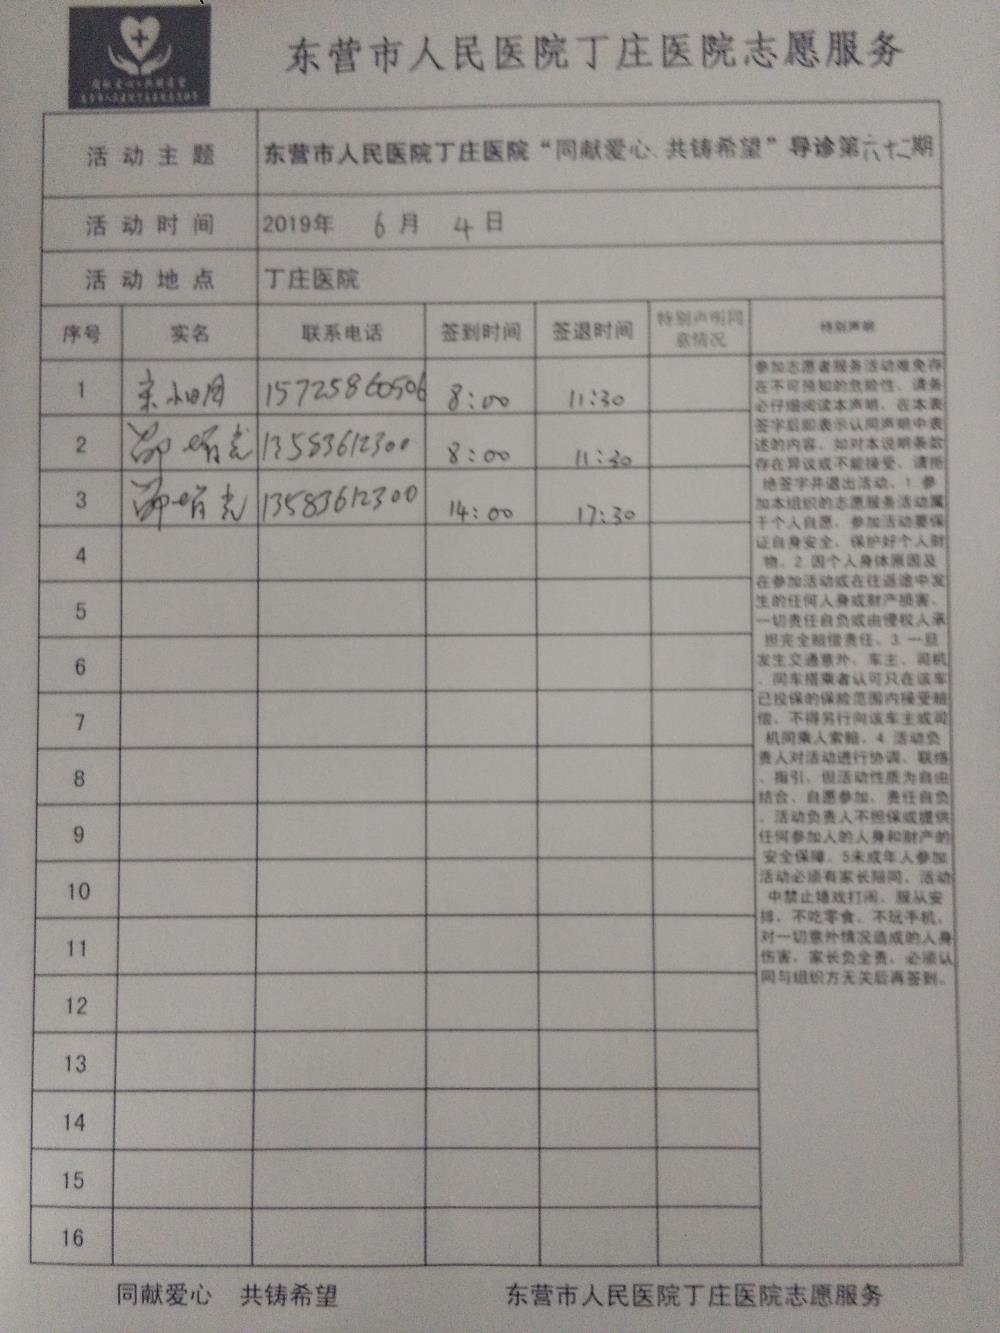 东营市人民医院丁庄医院志愿服务
活动主题 东营市人民医院丁庄医院“同献爱心、共铸希望”导诊第六十二期
活动时间 2019年 6月 4日
活动地点 丁庄医院
序号 实名 联系电话 签到时间 签退时间 特别声明同意情况 特别声明
1 15725860506 8:00 11:30
2 13583612300 8:00 11:30
3 13583612300 14:00 17:30
4
5
6
7
8
9
10
11
12
13
14
15
16
参加志愿者服务活动难免存
在不可预知的危险性，请务
必仔细阅读本声明，在本表
签字后即表示认同声明中表
述的内容，如对本说明条款
存在异议或不能接受，请拒
绝签字并退出活动。1.参
加本组织的志愿服务活动属
于个人自愿，参加活动要保
证自身安全，保护好个人财
物。2.因个人身体原因及
在参加活动或在往返途中发
生的任何人身或财产损害，
一切责任自负或由侵权人承
担完全赔偿责任。3.一旦
发生交通意外，车主、司机
、同车搭乘者认可只在该车
已投保的保险范围内接受赔
偿，不得另行向该车主或司
机同乘人索赔。4.活动负
责人对活动进行协调、联络
、指引，但活动性质为自由
结合，自愿参加，责任自负
，活动负责人不担保或提供
任何参加人的人身和财产的
安全保障。5未成年人参加
活动必须有家长陪同，活动
中禁止嬉戏打闹，服从安
排，不吃零食，不玩手机，
对一切意外情况造成的人身
伤害，家长负全责，必须认
同与组织方无关后再签到。
同献爱心 共铸希望 东营市人民医院丁庄医院志愿服务